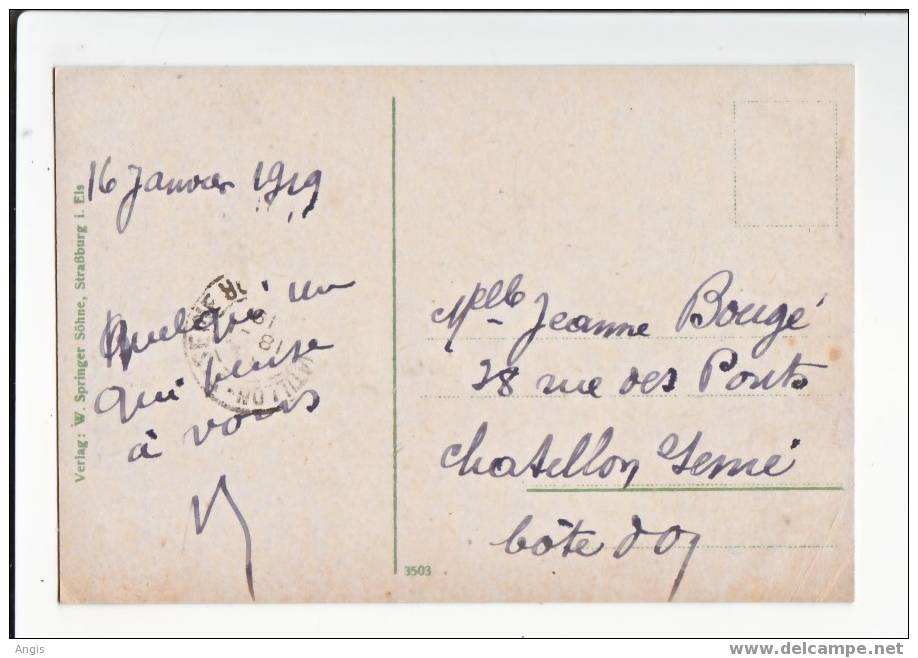 16 Janvier 1919
Quelqu'un
qui pense
à vous
Verlag: W. Springer Söhne, Straßburg i. Els
Mlle Jeanne Bougé
28 rue des Ponts
Chatillon s/ Seine
Côte d'Or
3503
Angis
www.delcampe.net